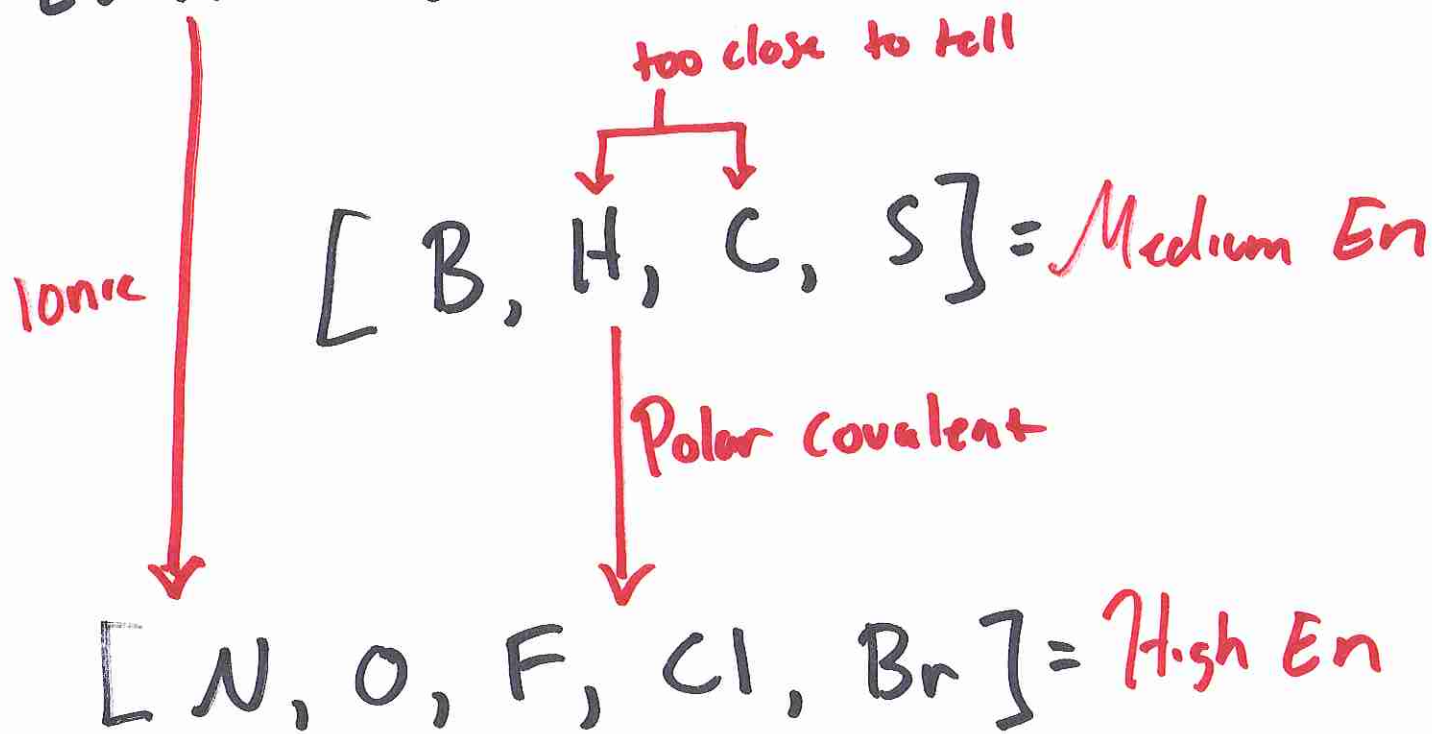 too close to tell
[ B, H, C, S ] = Medium En
Ionic
Polar covalent
[ N, O, F, Cl, Br ] = High En